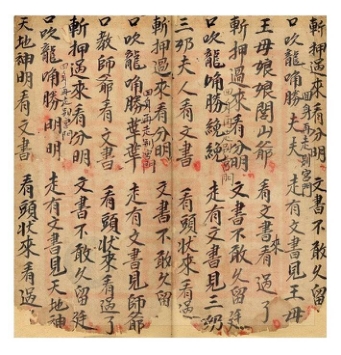 斬押過來看分明 文書不敢久留
口吹龍角勝夫夫 走有文書見王母
王母娘娘閭山爺 看文書來看過了
斬押過來看分明 文書不敢久留廷
口吹龍角勝總總 走有文書見三奶
三奶夫人看文書 看頭狀來看過
斬押過來看分明 文書不敢久留
口吹龍角勝 走有文書見師爺
口教師爺看文書 看頭狀來看過了
斬押過來看分明 文書不敢久留廷
口吹龍角勝明明 走有文書見天地神
天地神明看文書 看頭狀來看過